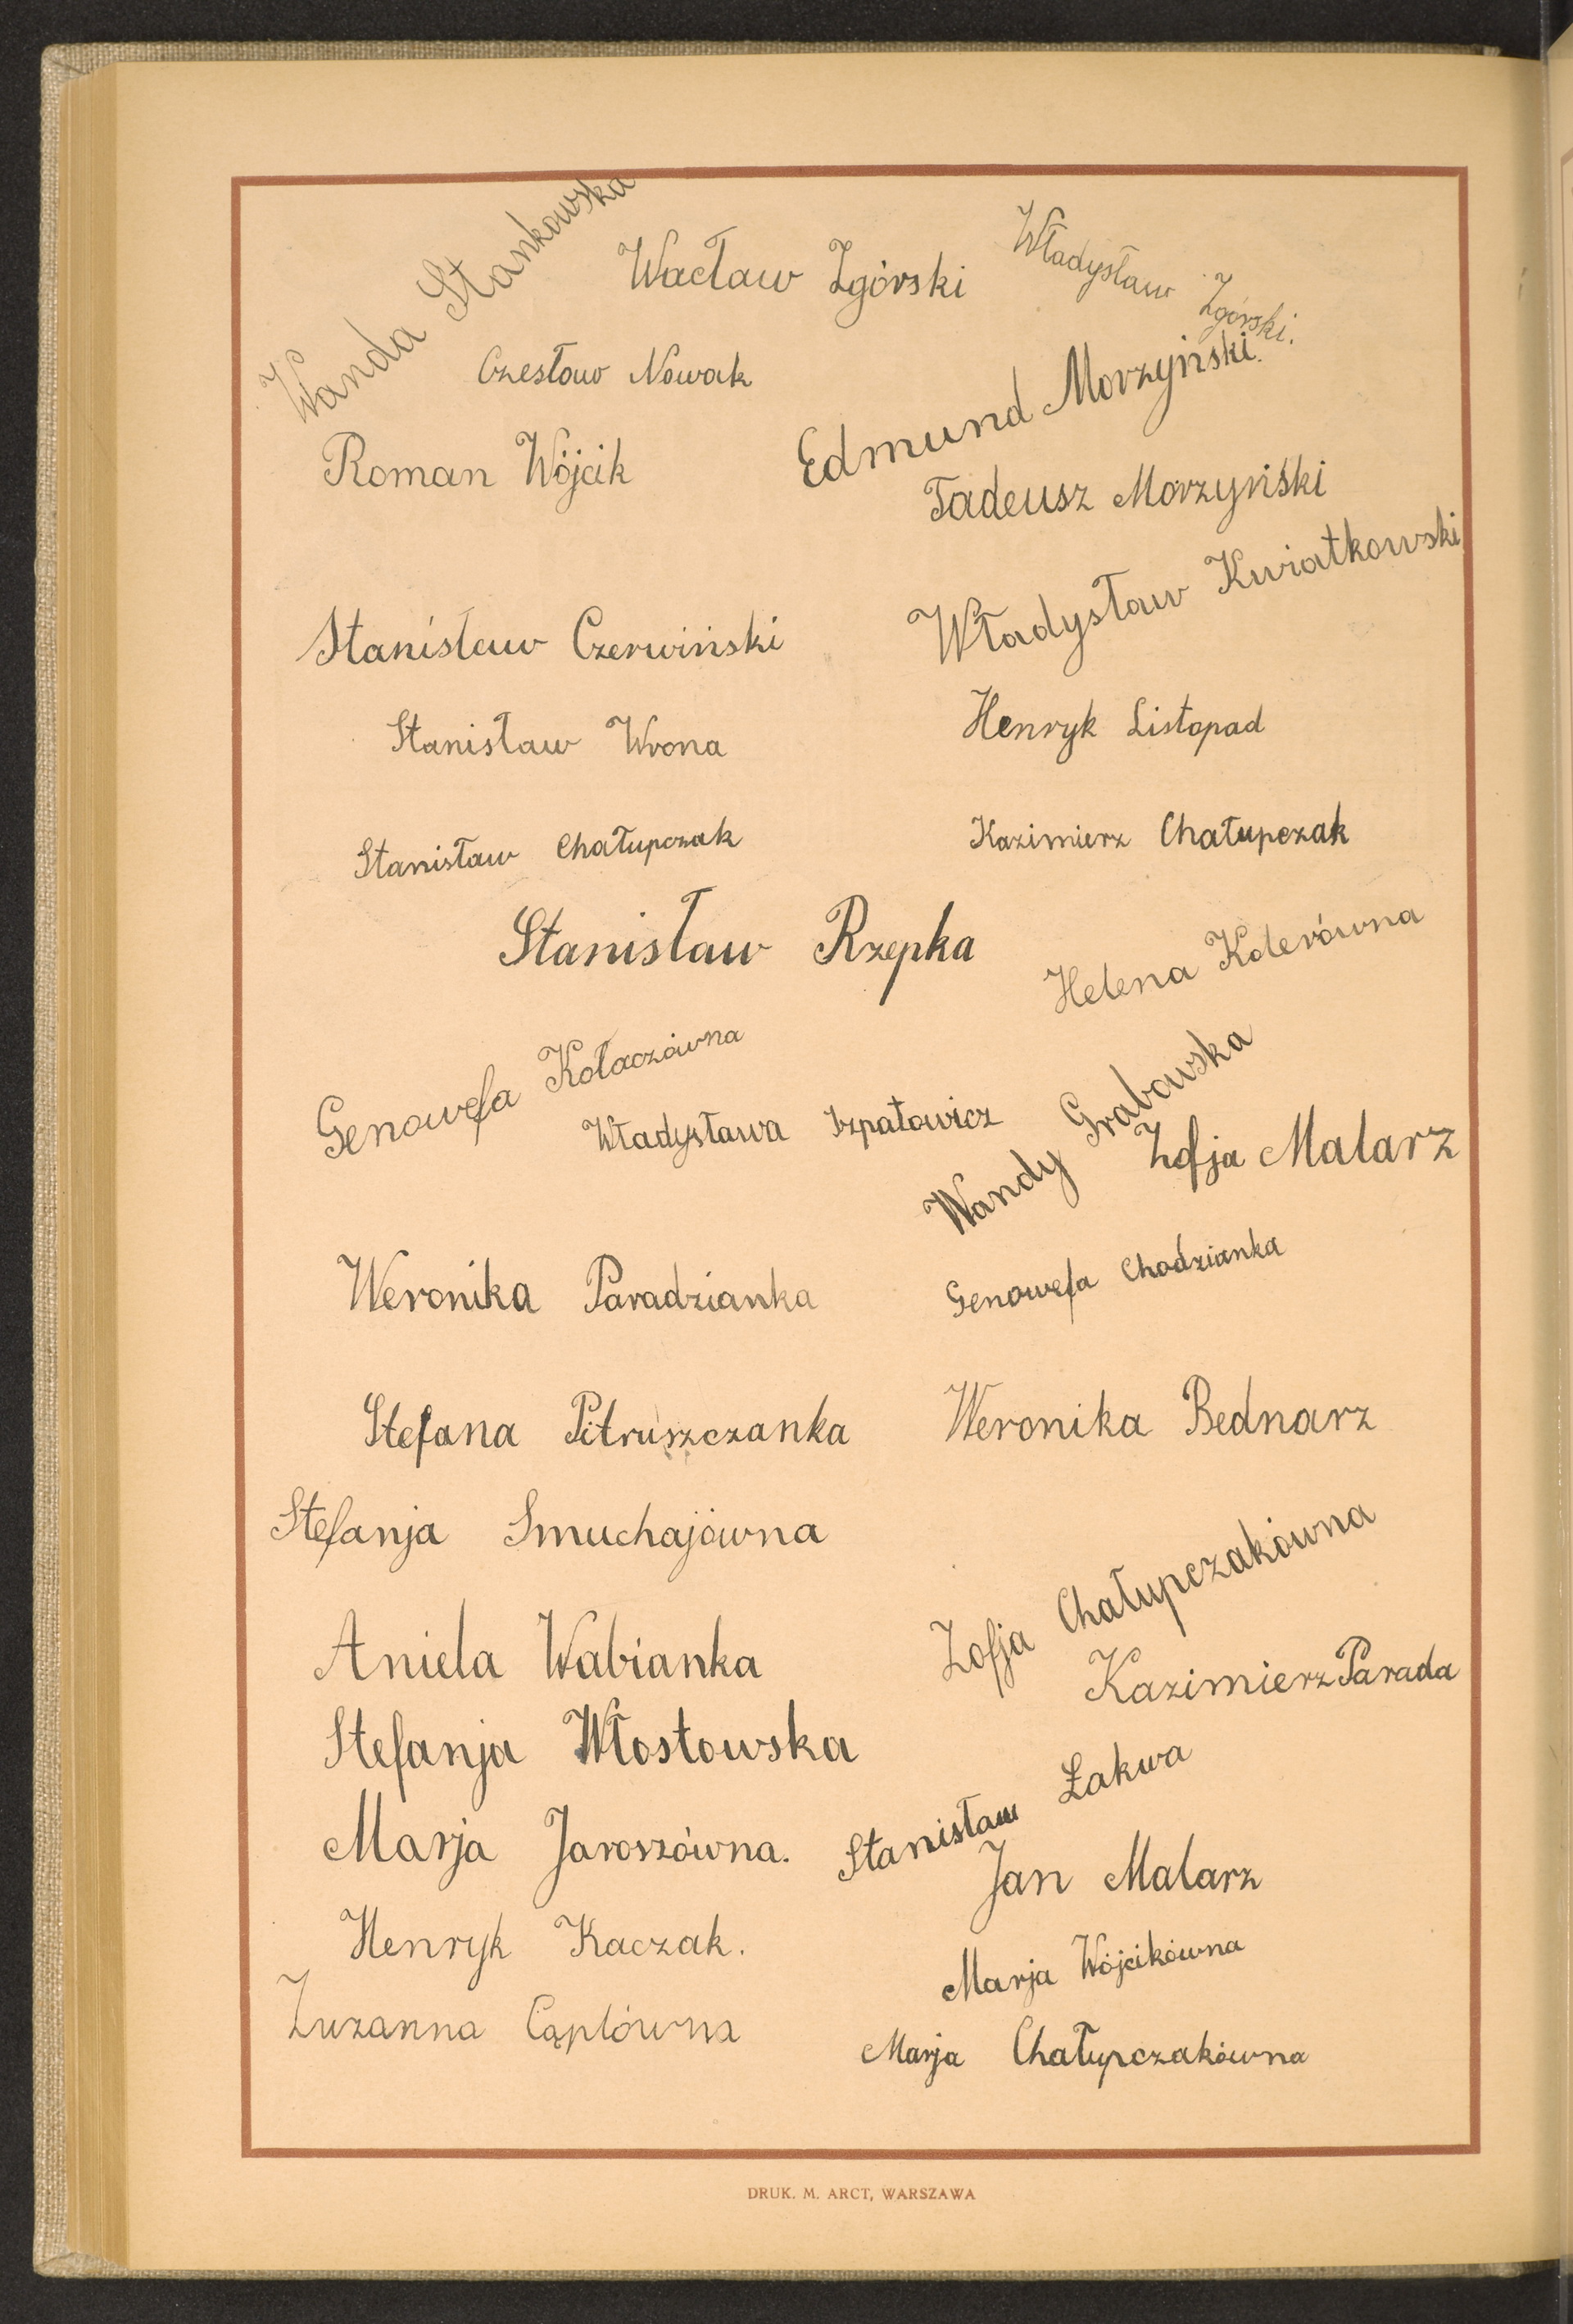 Wanda Stankowska
Wacław Zgórski
Władysław Zgórski.
Czesław Nowak
Edmund Morzyński.
Roman Wójcik
Tadeusz Morzyński
Władysław Kwiatkowski
Stanisław Czerwiński
Henryk Listopad
Stanisław Wrona
Stanisław Chałupczak
Kazimierz Chałupczak
Stanisław Rzepka
Helena Koterówna
Genowefa Kołaczówna
Władysława Szpatowicz
Wandy Grabowska
Zofja Malarz
Weronika Paradzianka
Genowefa Chodzianka
Stefana Pitruszczanka
Weronika Bednarz
Stefanja Smuchajówna
Zofja Chałupczakówna
Aniela Wabianka
Kazimierz Parada
Stefanja Włostowska
Stanisław Żakwa
Marja Jaroszówna.
Jan Malarz
Henryk Kaczak.
Marja Wójcikówna
Zuzanna Cąplówna
Marja Chałupczakówna
DRUK. M. ARCT, WARSZAWA